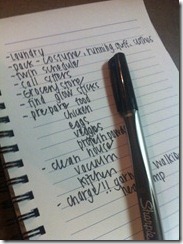 - laundry
- pack - costume, running stuff, clothes
- twin schedule
- call sitters
- grocery store
- find glow sticks
- prepare food
chicken
eggs
veggies
protein
- clean house
vacuum
kitchen
- charge!!!
Sharpie